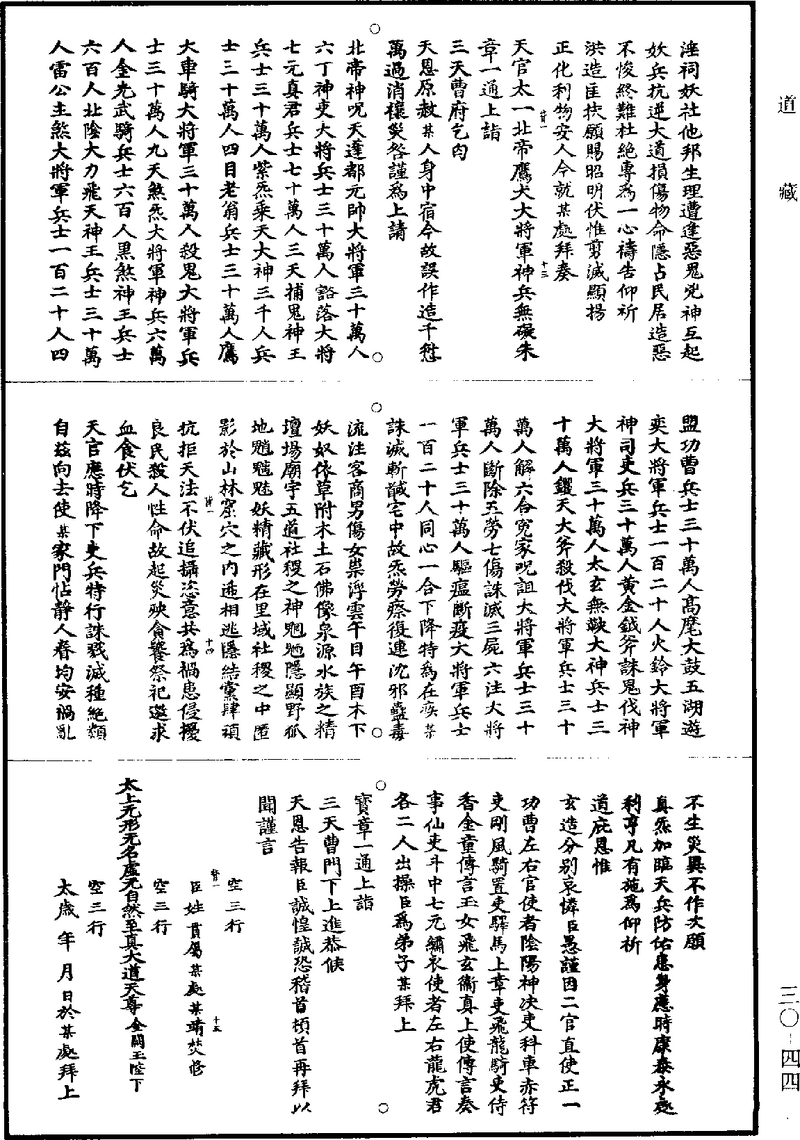 道藏
淫祠妖社他邦生理遭逢惡鬼兇神互起
妖兵抗逆大道損傷物命隱占民居造惡
不悛終難杜絕專為一心禱告仰祈
洪造匡扶願賜昭明伏惟剪滅顯揚
正化利物安人今就某處拜奏
天官太一北帝鷹犬大將軍神兵無礙朱
章一通上詣
三天曹府乞匃
天恩原赦某人身中宿今故誤作造千愆
萬過消禳災咎謹為上請
北帝神呪天蓬都元帥大將軍三十萬人
六丁神吏大將兵士三十萬人豁落大將
七元真君兵士七十萬人三天捕鬼神王
兵士三十萬人紫炁乘天大神三千人兵
士三十萬人四目老翁兵士三十萬人鷹
大車騎大將軍三十萬人殺鬼大將軍兵
士三十萬人九天煞炁大將軍神兵六萬
人金光武騎兵士六百人黑煞神王兵士
六百人北陰大力飛天神王兵士三十萬
人雷公主煞大將軍兵士一百二十人四
盟功曹兵士三十萬人高麾大鼓五湖遊
奕大將軍兵士一百二十人火鈴大將軍
神司吏兵三十萬人黃金鉞斧誅鬼伐神
大將軍三十萬人太玄無鞅大神兵士三
十萬人钁天大斧殺伐大將軍兵士三十
萬人解六合冤家呪詛大將軍兵士三十
萬人斷除五勞七傷誅滅三屍六注大將
軍兵士三十萬人驅瘟斷疫大將軍兵士
一百二十人同心一合下降特為在疾某
誅滅斬馘宅中故炁勞瘵復連沈邪蠱毒
流注客商男傷女祟浮雲午日午酉木下
妖奴依草附木土石佛像泉源水族之精
壇場廟宇五道社稷之神魍魎隱顯野狐
地魈魑魅妖精藏形在里域社稷之中匿
影於山林窟穴之內遞相逃隱結黨肆頑
抗拒天法不伏追攝恣意共為禍患侵擾
良民殺人性命故起災殃貪饕祭祀邀求
血食伏乞
天官應時降下吏兵特行誅戮滅種絕類
自茲向去使某家門怗靜人眷均安禍亂
不生災異不作次願
真炁加臨天兵防佑患身應時康泰永處
利亨凡有施為仰祈
道庇恩惟
玄造分別哀憐臣愚謹因二官直使正一
功曹左右官使者陰陽神決吏科車赤符
吏剛風騎置吏驛馬上章吏飛龍騎吏侍
香金童傳言玉女飛玄銜真上使傳言奏
事仙吏斗中七元繡衣使者左右龍虎君
各二人出操臣為弟子某拜上
寶章一通上詣
三天曹門下上進恭候
天恩告報臣誠惶誠恐稽首頓首再拜以
聞謹言
空三行
臣姓貫屬某處某靖焚修
空三行
太上无形无名虛无自然至真大道天尊金闕玉陛下
空三行
太歲年月日於某處拜上
三〇-四四